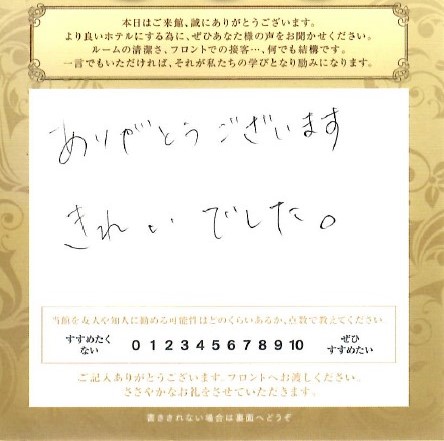 本日はご来館、誠にありがとうございます。
より良いホテルにする為に、ぜひあなた様の声をお聞かせください。
ルームの清潔さ、フロントでの接客…、何でも結構です。
一言でもいただければ、それが私たちの学びとなり励みになります。
ありがとうございます
きれいでした。
当館を友人や知人に勧める可能性はどのくらいあるか、点数で教えてください。
すすめたくない 0 1 2 3 4 5 6 7 8 9 10 ぜひすすめたい
ご記入ありがとうございます。フロントへお渡しください。
ささやかなお礼をさせていただきます。
書ききれない場合は裏面へどうぞ